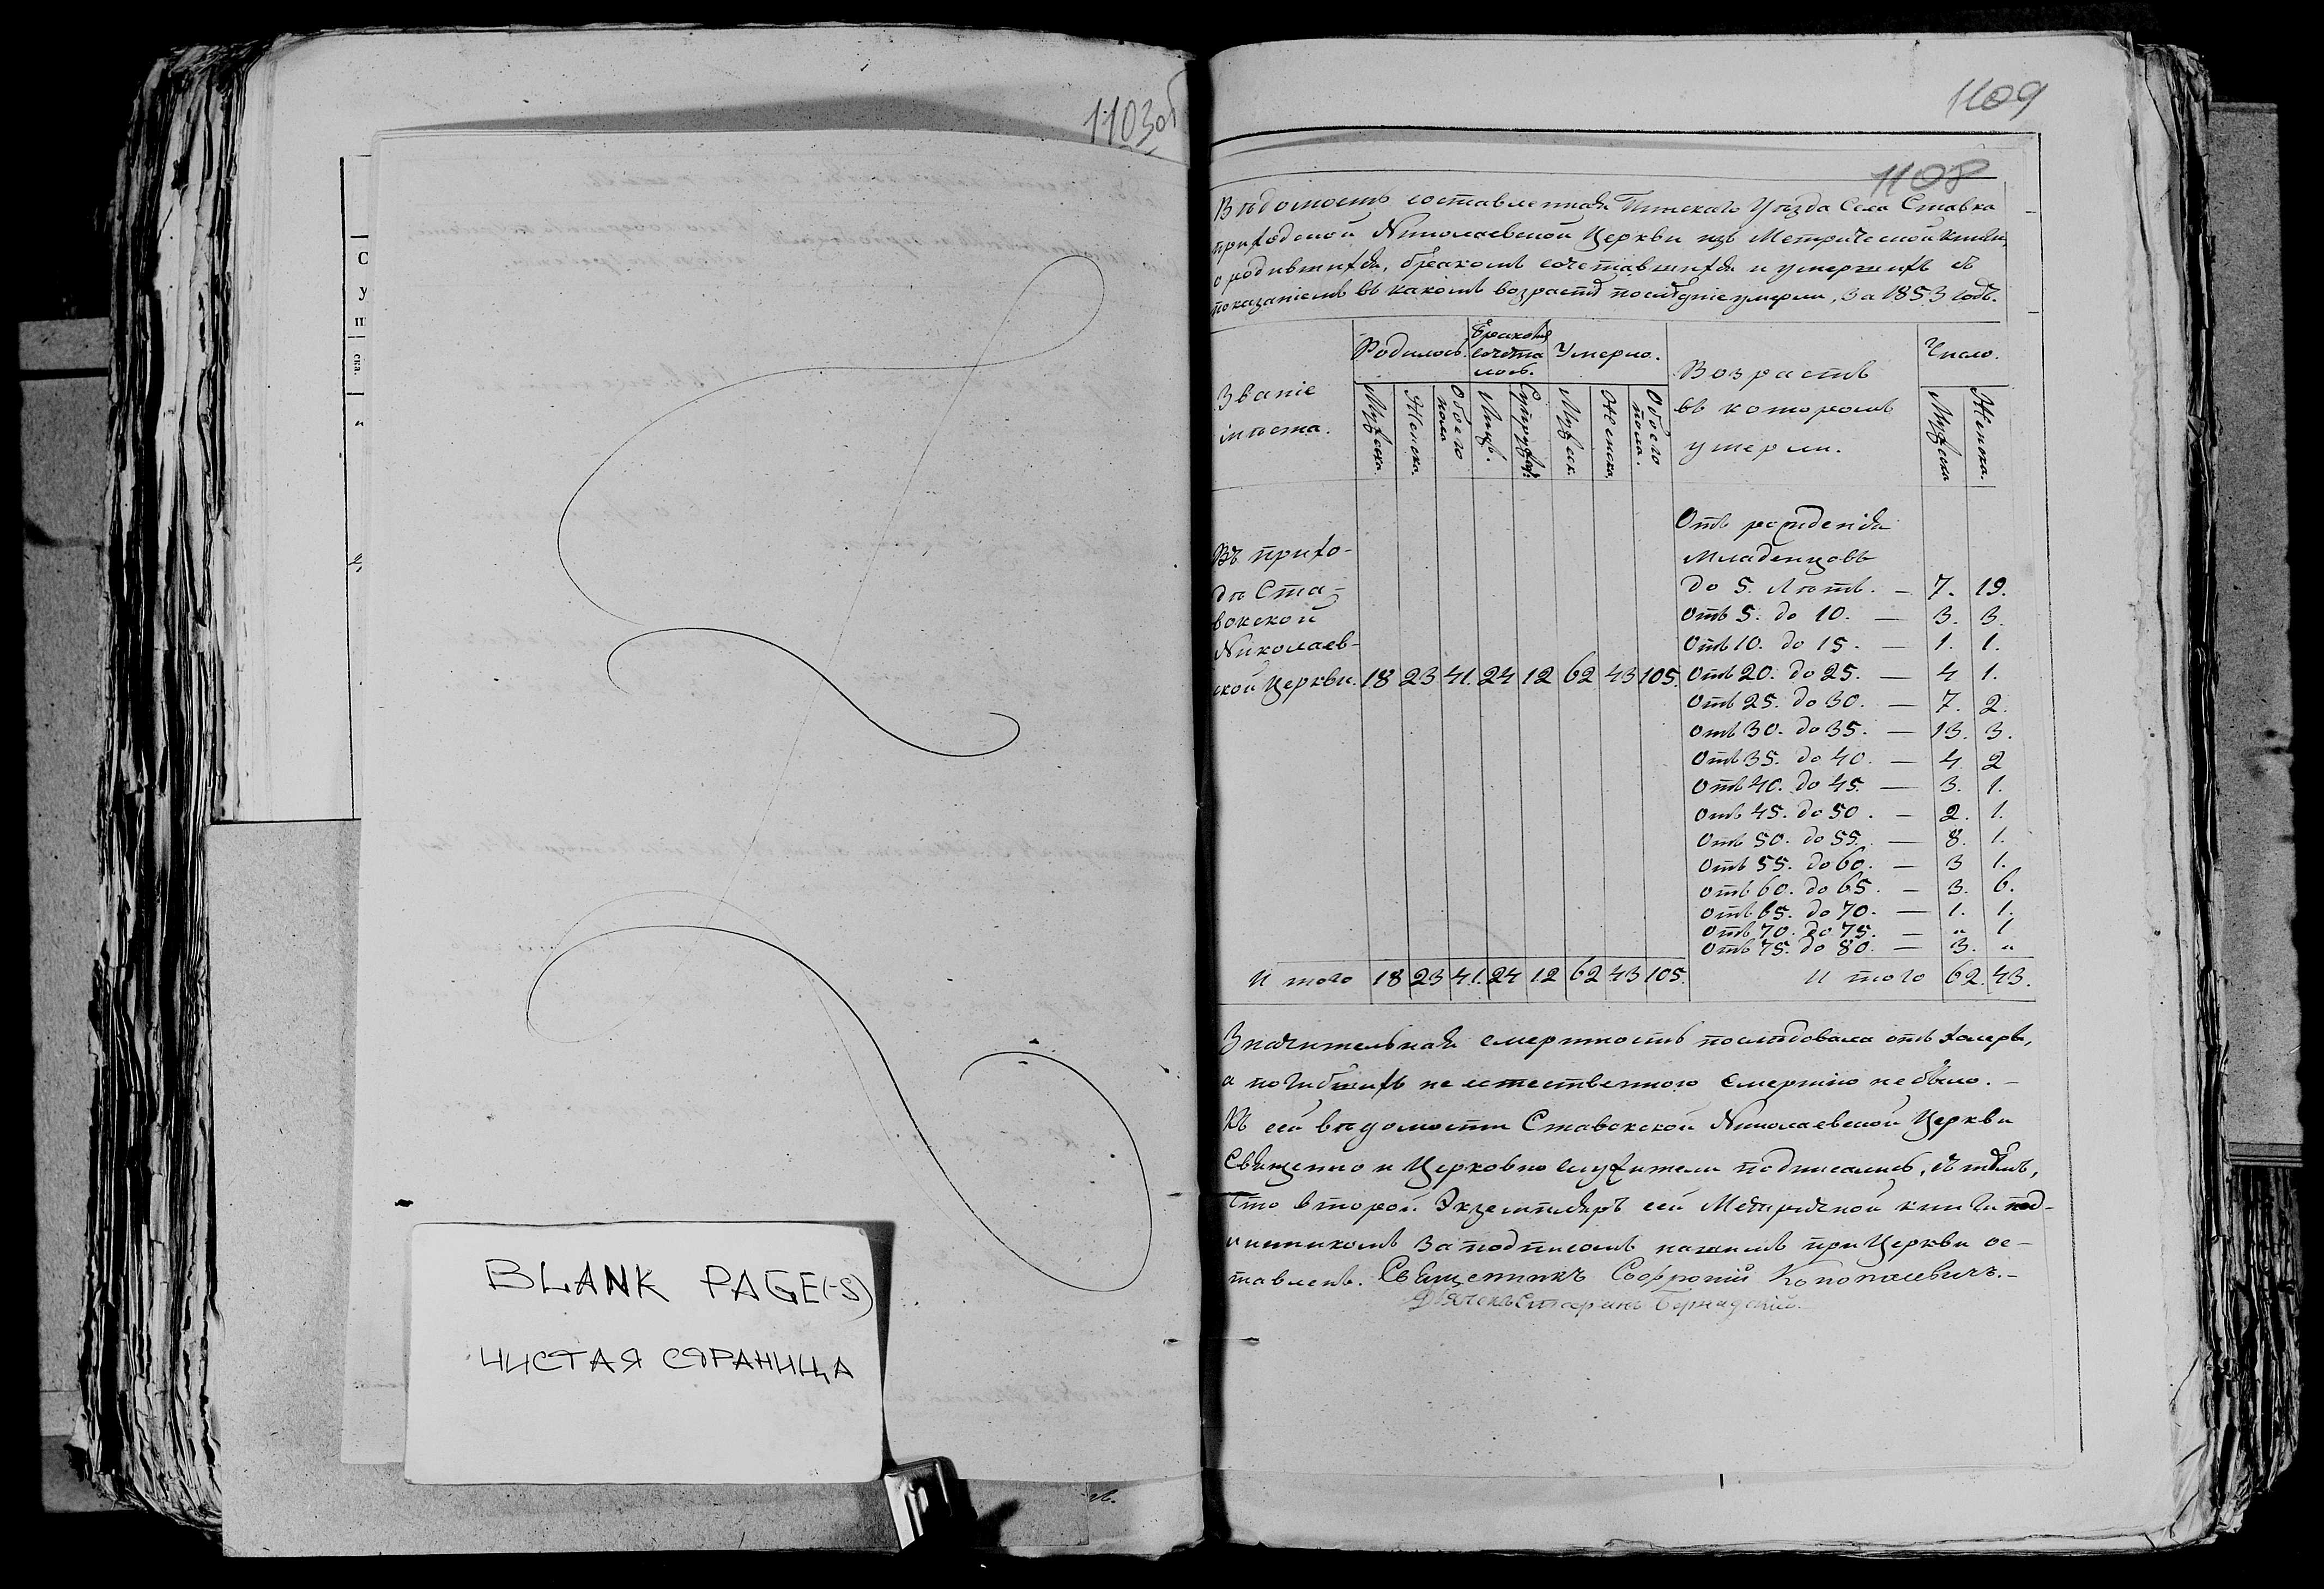 1103об
1109
1108
Вѣдомость составленная Пинскаго Уѣзда Села Ставка
приходской Николаевской Церкви изъ Метрической книги,
о родившихся, бракомъ сочетавшихся и умершихъ съ
показаніемъ въ какомъ возрастѣ послѣдніе умерли, за 1853 годъ.
Званіе
мѣста.
Родилось.
Бракомъ
сочета
лось.
Умерло.
Возрастъ
въ которомъ
умерли.
Число.
Мужеска.
Женска.
Обоего
пола
Лицъ.
Супружес.
Мужеск.
Женска,
Обоего
пола.
Мужеска
Женска.
Отъ рожденія
Младенцовъ
Въ прихо-
дѣ Ста-
вокской
Николаев-
ской Церкви. 18 23 41. 24 12 62 43 105.
до 5. Лѣтъ. — 7. 19.
Отъ 5. до 10. — 3. 3.
Отъ 10. до 15. — 1. 1.
Отъ 20. до 25. — 4 1.
Отъ 25. до 30. — 7. 2.
Отъ 30. до 35. — 13. 3.
Отъ 35. до 40. — 4 2
Отъ 40. до 45. — 3. 1.
Отъ 45. до 50. — 2. 1.
Отъ 50. до 55. — 8. 1.
Отъ 55. до 60. — 3 1.
Отъ 60. до 65. — 3. 6.
Отъ 65. до 70. — 1. 1.
Отъ 70. до 75. — „ 1
Отъ 75. до 80. — 3. „
И того 18 23 41. 24 12 62 43 105. И того 62. 43.
Значительная смертность послѣдовала отъ холеры,
а погибшихъ не естественною смертію не было. —
Къ сей вѣдомости Ставокской Николаевской Церкви
Священно и Церковно служители подписались, съ тѣмъ,
что второй Экземпляръ сей Метричной книги под-
линникомъ за подписомъ нашимъ при Церкви ос-
тавленъ. Священникъ Софроній Кононасевичъ. —
Дьячекъ
BLANK PAGE(-S)
ЧИСТАЯ СТРАНИЦА